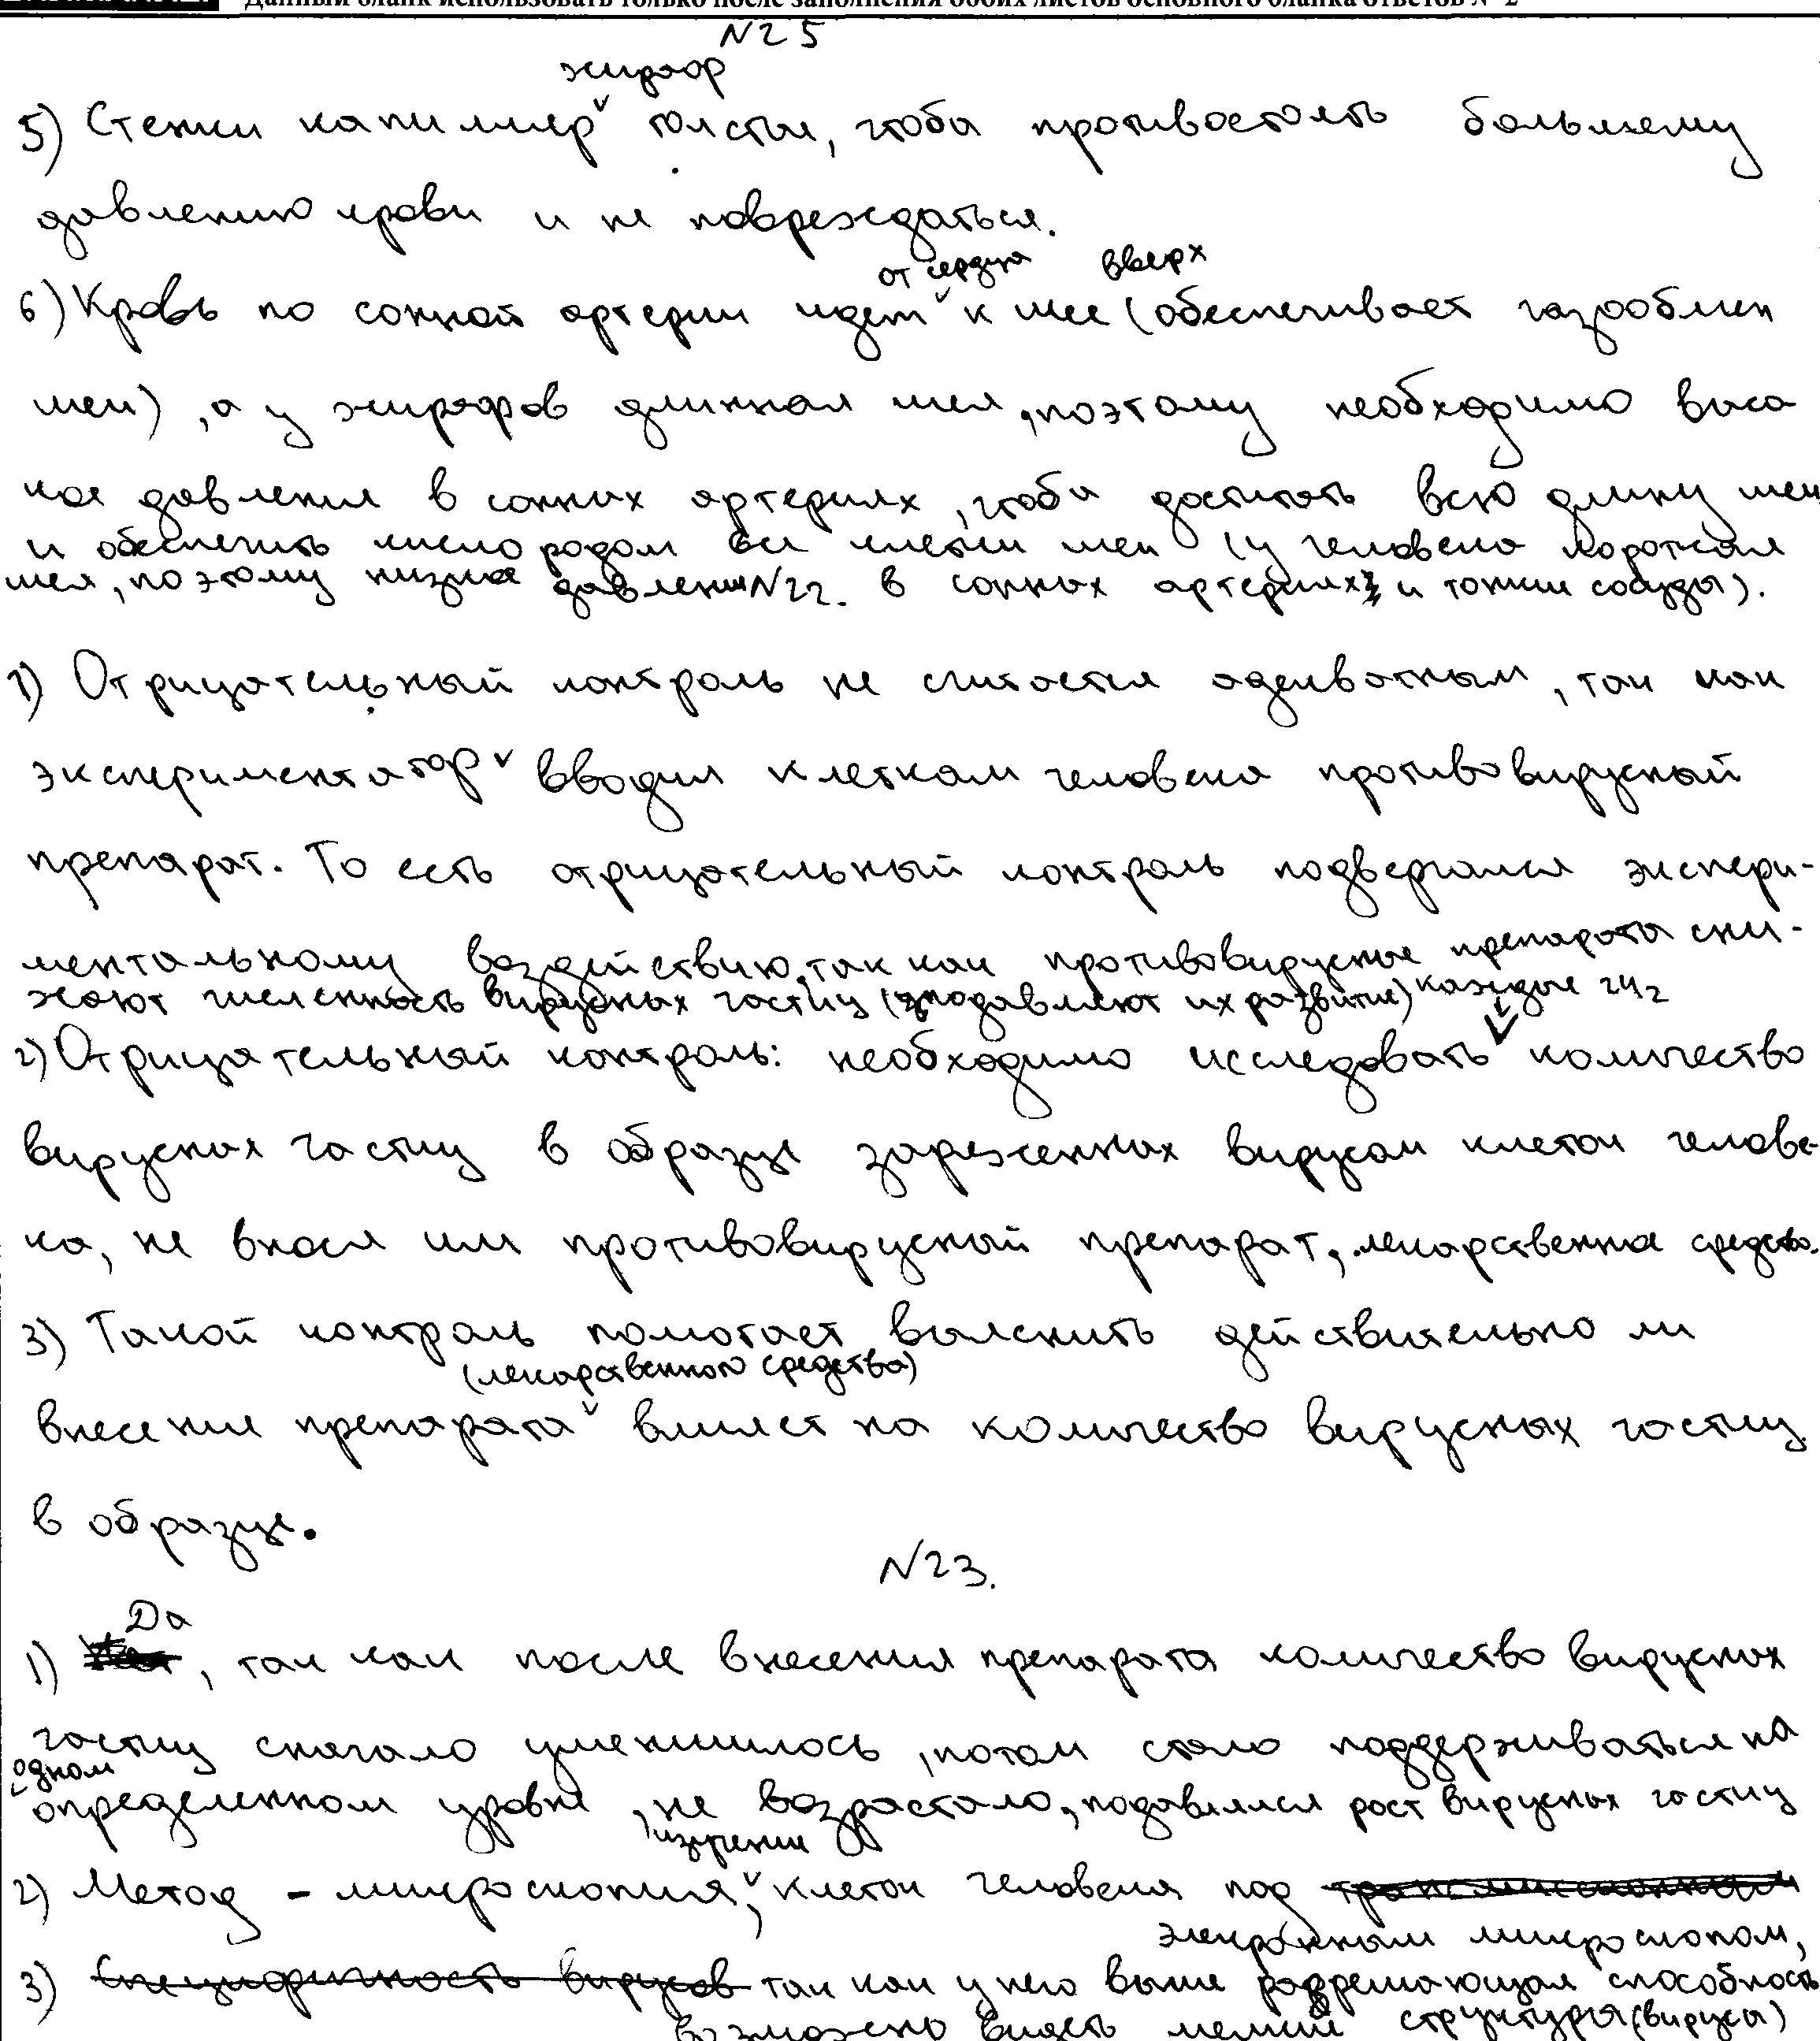 Данный бланк использовать только после заполнения обоих листов основного бланка ответов № 2
N25
жираф
5) Стенки капилляр толстые, чтобы противостоять большему
давлению крови и не повреждаться.
от сердца вверх
6) Кровь по сонной артерии идет к шее (обеспечивает газообмен
шеи), а у жирафов длинная шея, поэтому необходимо высо
кое давление в сонных артериях, чтобы достигать всю длину шеи
и обеспечить кислородом все клетки шеи (у человека короткая
шея, поэтому низкое давление в сонных артериях и тонкие сосуды).
N22.
1) Отрицательный контроль не считается адекватным, так как
экспериментатор вводил клеткам человека противовирусный
препарат. То есть отрицательный контроль подвергался экспери-
ментальному воздействию, так как противовирусные препарата сни-
жают численность вирусных частиц (подавляют их развитие)
каждые 2ч
2) Отрицательный контроль: необходимо исследовать количество
вирусных частиц в образце зараженных вирусом клеток челове-
ка, не внося им противовирусный препарат, лекарственное средство.
3) Такой контроль помогает выяснить действительно ли
(лекарственного средства)
внесение препарата влияет на количество вирусных частиц
в образце.
N23.
Да
1) , так как после внесения препарата количество вирусных
частиц сначало уменшилось, потом стало поддерживаться на
одном
определенном уровне, не возрастало, подавлялся рост вирусных частиц
изучение
2) Метод - микроскопия, клеток человека под
электронным микроскопом,
3) Специфичность вирусов так как у него выше разрешающая способность
возможно видеть мелкие структуры (вируса)